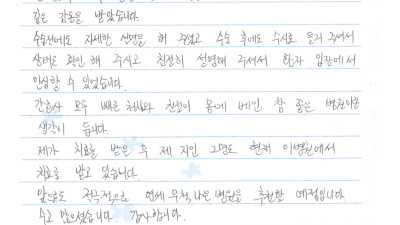 깊은 감동을 받았습니다.
수술전에도 자세한 설명을 해 주셨고 수술 후에도 수시로 들러 주셔서
상태를 확인해 주시고 친절히 설명해 주셔서 환자 입장에서
안심할 수 있었습니다.
간호사 모두 빠른 처치와 친절이 몸에 베인 참 좋은 병원이란
생각이 듭니다.
제가 치료를 받은 후 제 지인 2명도 현재 이병원에서
치료를 받고 있습니다.
앞으로도 적극적으로 연세 무척나은 병원을 추천할 예정입니다.
수고 많으셨습니다. 감사합니다.